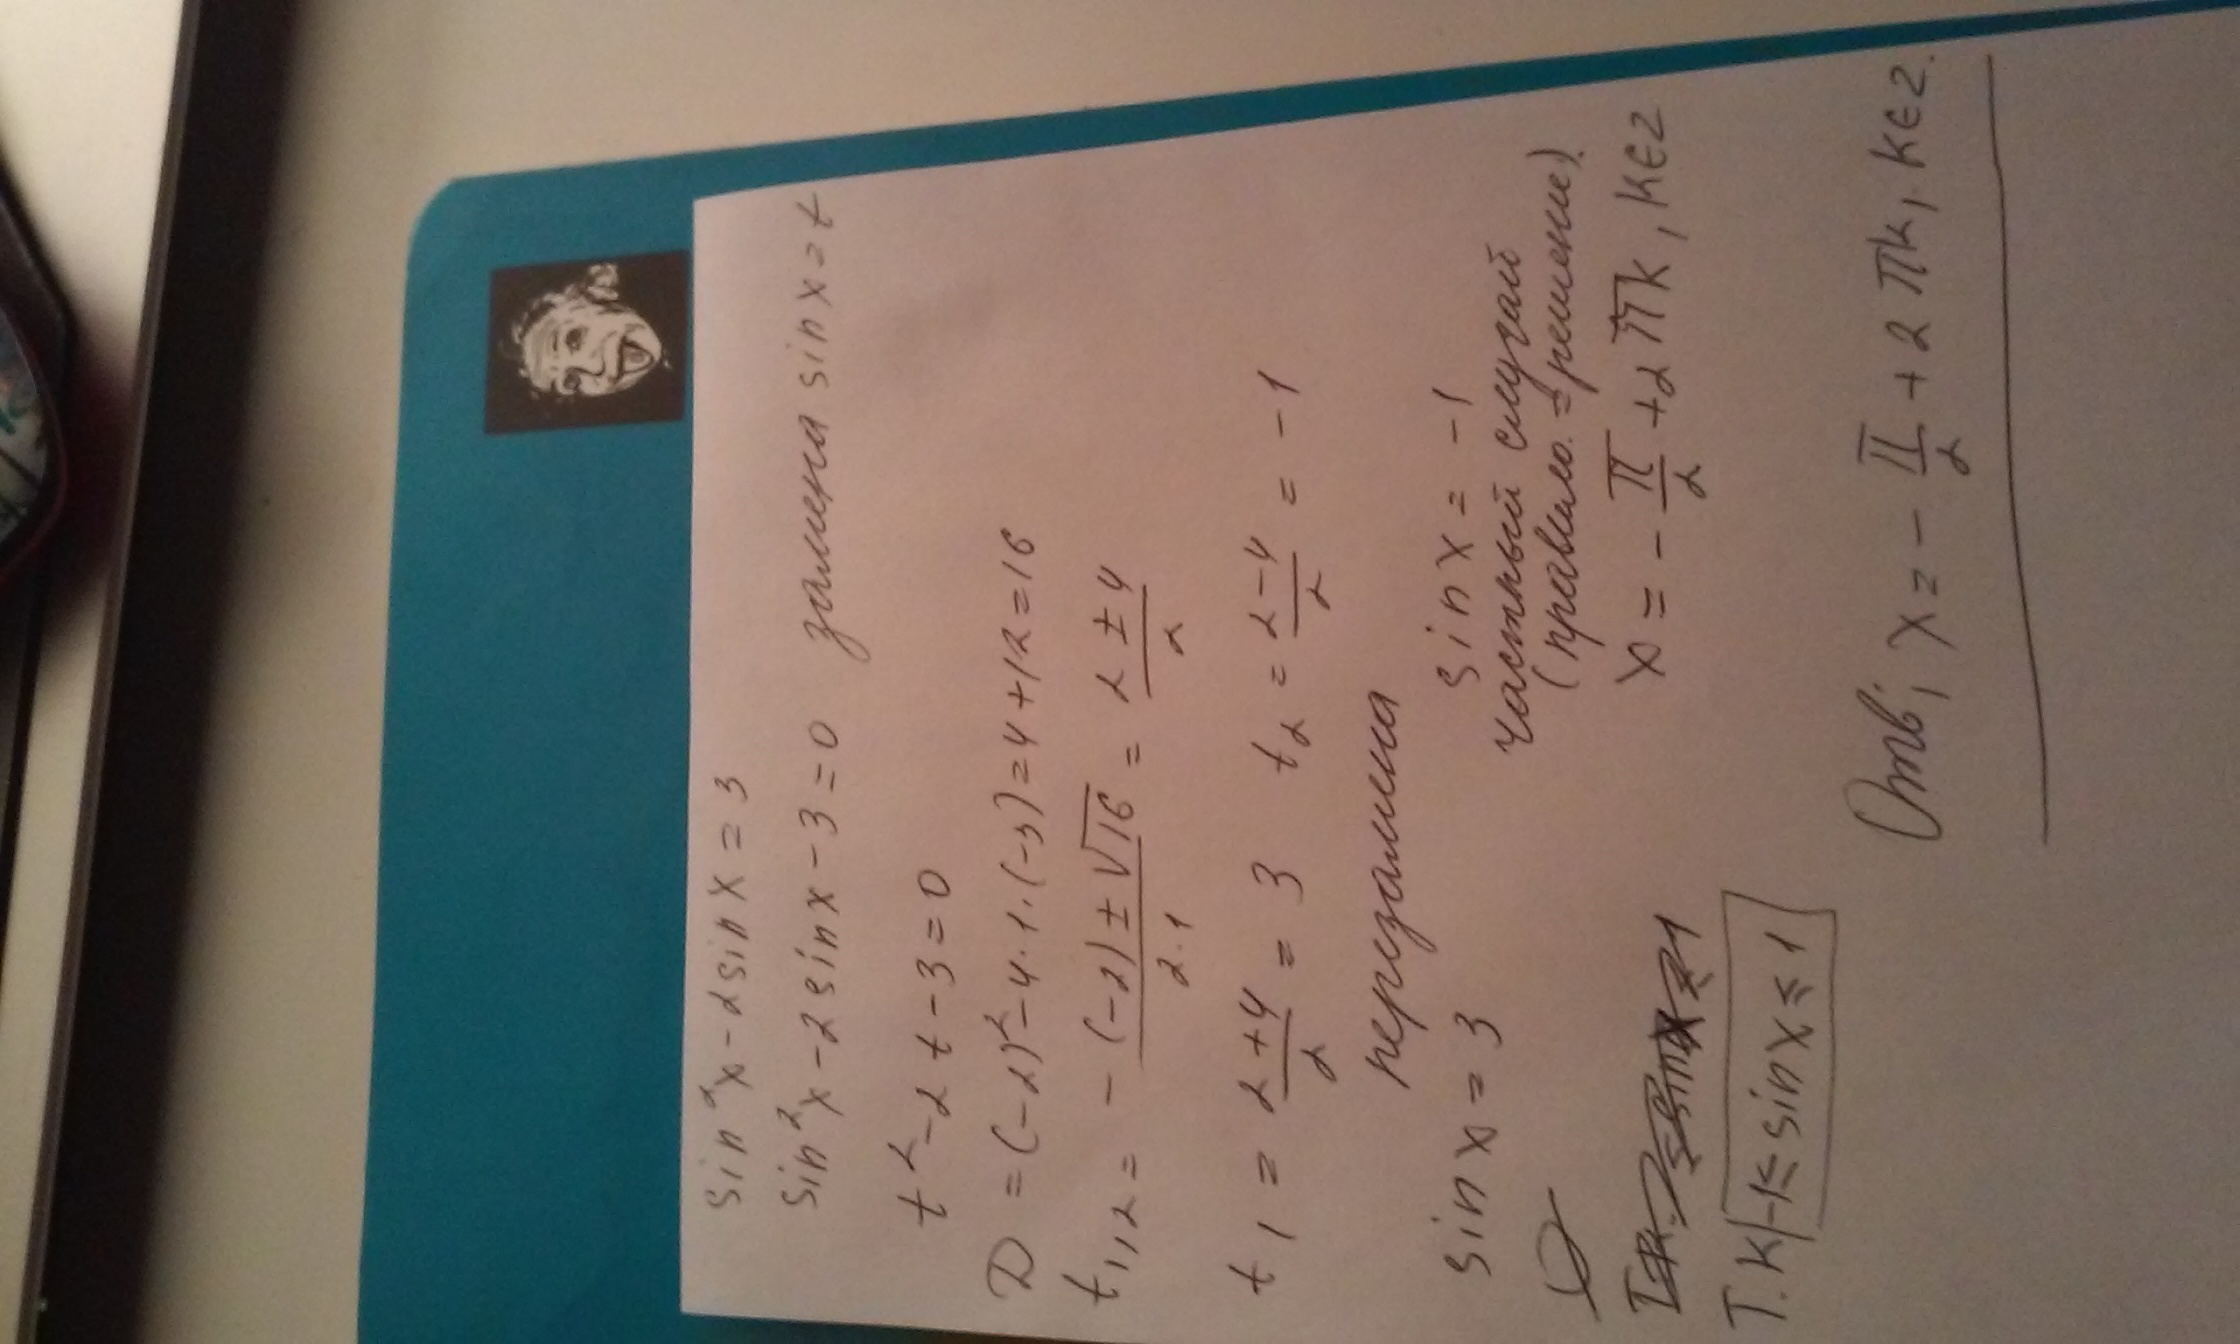 sin²x - 2sin x = 3
sin²x - 2sin x - 3 = 0 замена sin x = t
t² - 2t - 3 = 0
D = (-2)² - 4·1·(-3) = 4 + 12 = 16
t₁,₂ = -(-2) ± √16 / 2·1 = 2 ± 4 / 2
t₁ = 2 + 4 / 2 = 3 t₂ = 2 - 4 / 2 = -1
перезамена
sin x = 3 sin x = -1
∅ частный случай
(правило = решение)
x = -π/2 + 2πk, k∈Z
Т.к -1 ≤ sin x ≤ 1
Отв: x = -π/2 + 2πk, k∈Z.